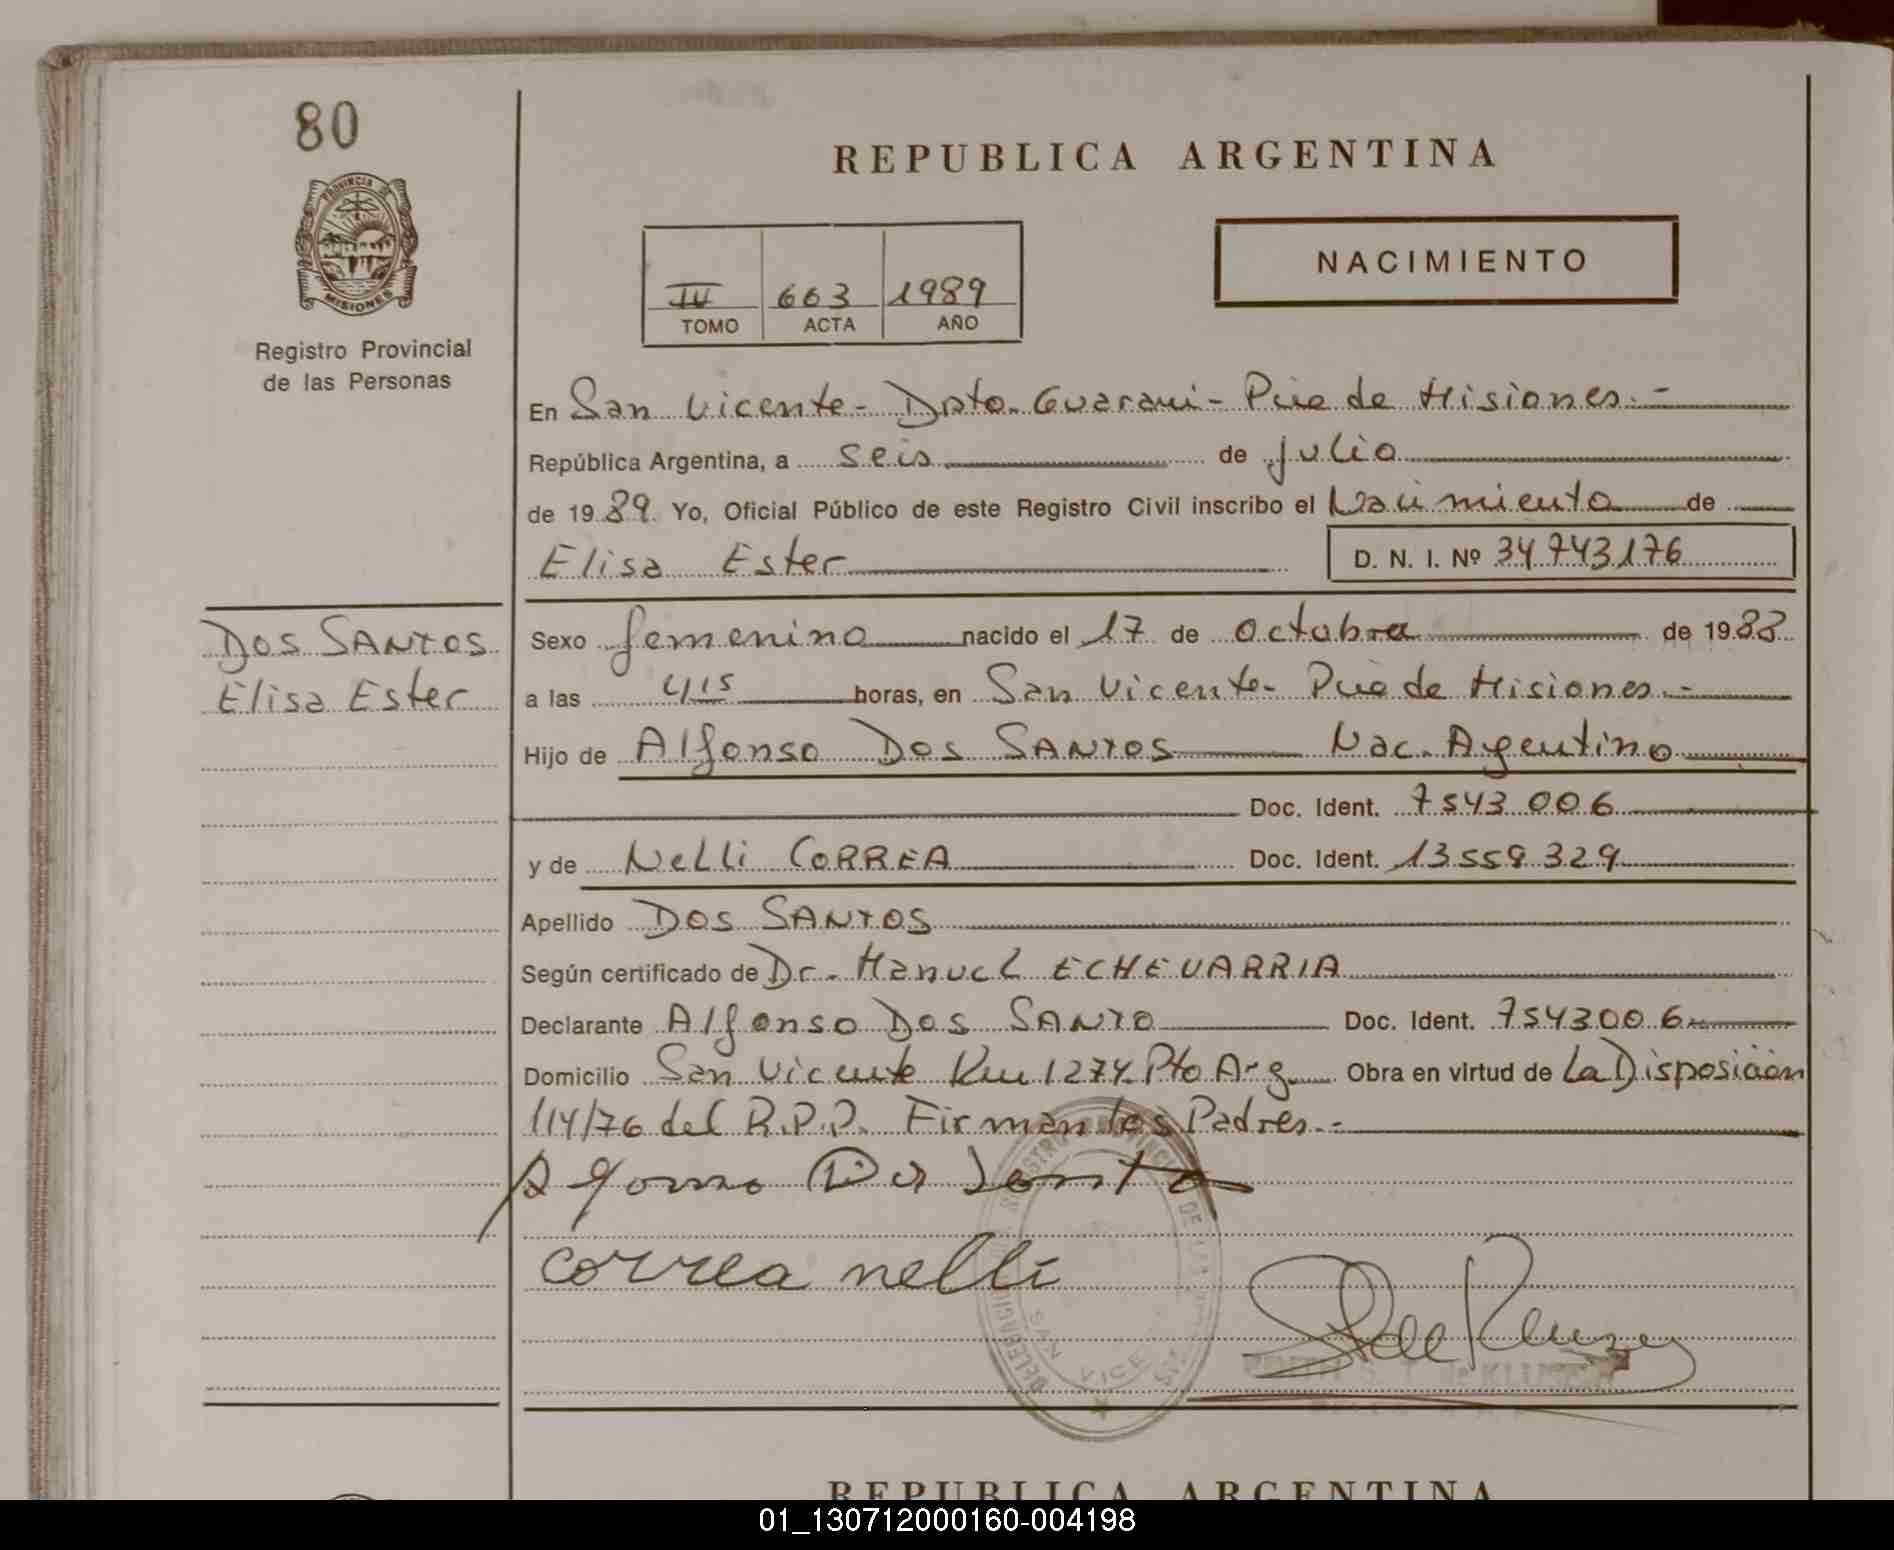 80
REPUBLICA ARGENTINA
PROVINCIA DE
MISIONES
Registro Provincial
de las Personas
663 1989
TOMO ACTA AÑO
NACIMIENTO
En San Vicente - Dpto. Guarani - Pcia de Misiones.-
República Argentina, a seis de julio
de 1989. Yo, Oficial Público de este Registro Civil inscribo el Nacimiento de
Elisa Ester
D. N. I. Nº 34.743.176
DOS SANTOS
Elisa Ester
Sexo femenino nacido el 17 de octubre de 1988
a las 4,15 horas, en San Vicente - Pcia de Misiones.-
Hijo de Alfonso Dos SANTOS Nac. Argentino
Doc. Ident. 7543006
y de Nelli CORREA Doc. Ident. 13.558.329
Apellido DOS SANTOS
Según certificado de Dr. Manuel ECHEVARRIA
Declarante Alfonso Dos SANTO Doc. Ident. 7543006
Domicilio San Vicente Km 1274 Pto Arg Obra en virtud de La Disposición
114/76 del R.P.P. Firman los Padres.-
correa nelli
DELEGACION
SAN VICE
REPUBLICA ARGENTINA
01_130712000160-004198